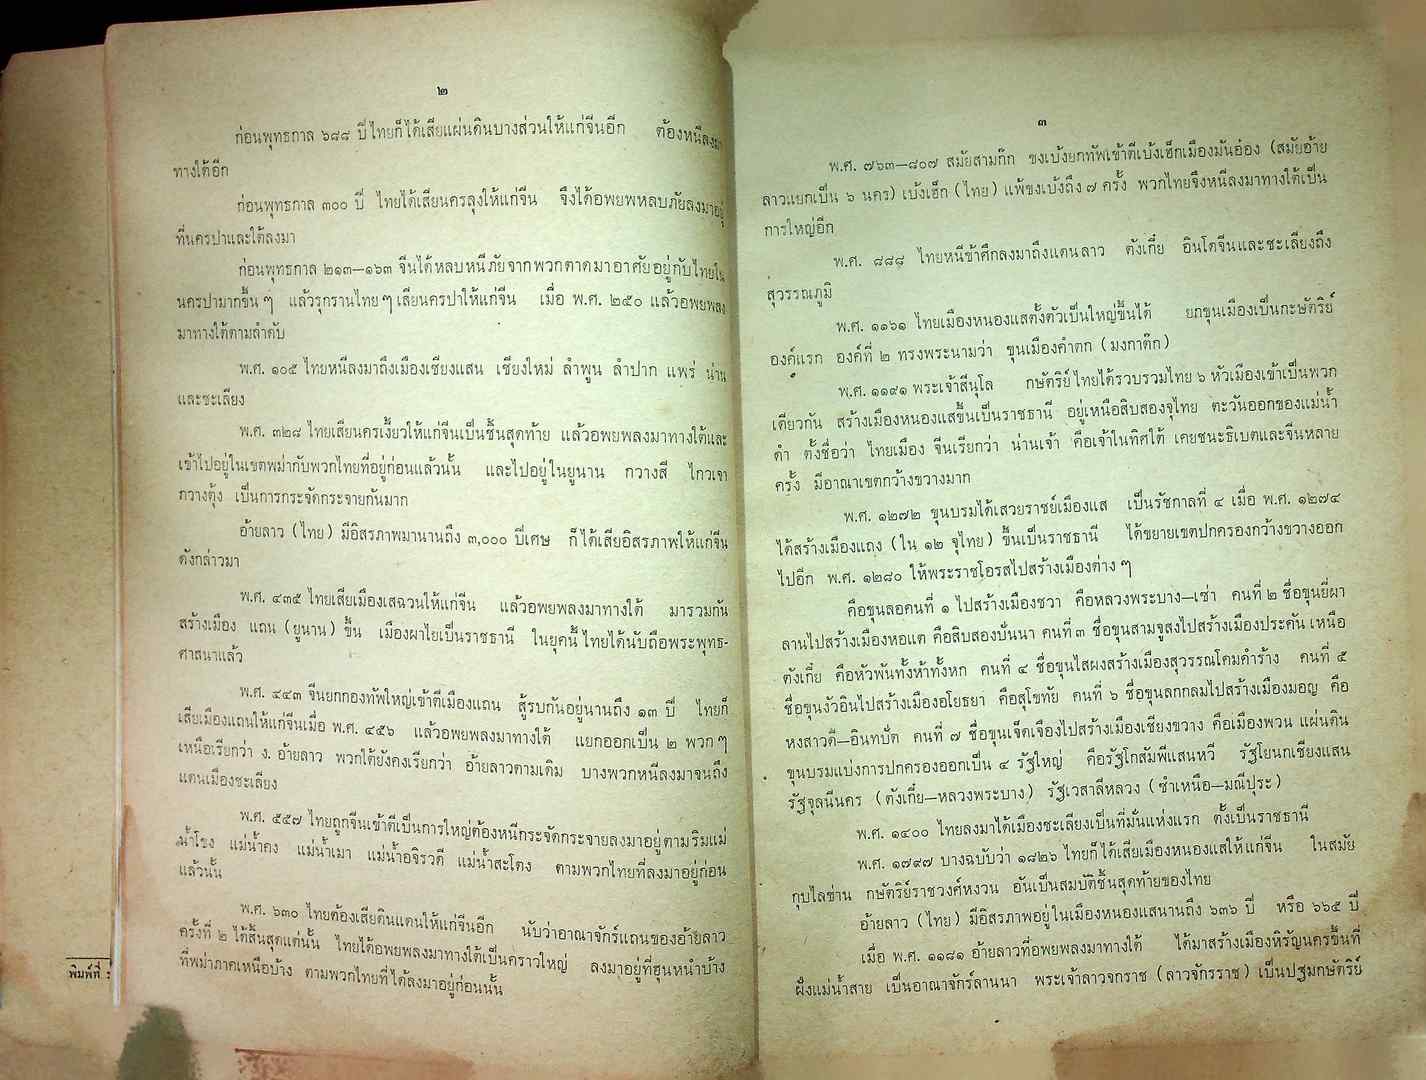 ๒
ก่อนพุทธกาล ๖๘๘ ปี ไทยก็ได้เสียแผ่นดินบางส่วนให้แก่จีนอีก ต้องหนีลงมา
ทางใต้อีก
ก่อนพุทธกาล ๓๐๐ ปี ไทยได้เสียนครลุงให้แก่จีน จึงได้อพยพหลบภัยลงมาอยู่
ที่นครปาและใต้ลงมา
ก่อนพุทธกาล ๒๑๓—๑๖๓ จีนได้หลบหนีภัยจากพวกตาดมาอาศัยอยู่กับไทยใน
นครปามากขึ้น ๆ แล้วรุกรานไทย ๆ เสียนครปาให้แก่จีน เมื่อ พ.ศ. ๒๕๐ แล้วอพยพลง
มาทางใต้ตามลำดับ
พ.ศ. ๑๐๕ ไทยหนีลงมาถึงเมืองเชียงแสน เชียงใหม่ ลำพูน ลำปาก แพร่ น่าน
และชะเลียง
พ.ศ. ๓๒๘ ไทยเสียนครเงี้ยวให้แก่จีนเป็นชิ้นสุดท้าย แล้วอพยพลงมาทางใต้และ
เข้าไปอยู่ในเขตพม่ากับพวกไทยที่อยู่ก่อนแล้วนั้น และไปอยู่ในยูนาน กวางสี ไกวเจา
กวางตุ้ง เป็นการกระจัดกระจายกันมาก
อ้ายลาว (ไทย) มีอิสรภาพมานานถึง ๓,๐๐๐ ปีเศษ ก็ได้เสียอิสรภาพให้แก่จีน
ดังกล่าวมา
พ.ศ. ๔๓๕ ไทยเสียเมืองเสฉวนให้แก่จีน แล้วอพยพลงมาทางใต้ มารวมกัน
สร้างเมือง แถน (ยูนาน) ขึ้น เมืองผาไยเป็นราชธานี ในยุคนี้ไทยได้นับถือพระพุทธ-
ศาสนาแล้ว
พ.ศ. ๔๔๓ จีนยกกองทัพใหญ่เข้าตีเมืองแถน สู้รบกันอยู่นานถึง ๑๓ ปี ไทยก็
เสียเมืองแถนให้แก่จีนเมื่อ พ.ศ. ๔๕๖ แล้วอพยพลงมาทางใต้ แยกออกเป็น ๒ พวก ๆ
เหนือเรียกว่า ง. อ้ายลาว พวกใต้ยังคงเรียกว่า อ้ายลาวตามเดิม บางพวกหนีลงมาจนถึง
แดนเมืองชะเลียง
พ.ศ. ๕๕๗ ไทยถูกจีนเข้าตีเป็นการใหญ่ต้องหนีกระจัดกระจายลงมาอยู่ตามริมแม่
น้ำโขง แม่น้ำคง แม่น้ำเมา แม่น้ำอจิรวดี แม่น้ำสะโตง ตามพวกไทยที่ลงมาอยู่ก่อน
แล้วนั้น
พ.ศ. ๖๓๐ ไทยต้องเสียดินแดนให้แก่จีนอีก นับว่าอาณาจักร์แถนของอ้ายลาว
ครั้งที่ ๒ ได้สิ้นสุดแต่นั้น ไทยได้อพยพลงมาทางใต้เป็นคราวใหญ่ ลงมาอยู่ที่ฮุนหนำบ้าง
ที่พม่าภาคเหนือบ้าง ตามพวกไทยที่ได้ลงมาอยู่ก่อนนั้น
พิมพ์ที่ :
๓
พ.ศ. ๗๖๓—๘๐๗ สมัยสามก๊ก ขงเบ้งยกทัพเข้าตีเบ้งเฮ็กเมืองมันอ๋อง (สมัยอ้าย
ลาวแยกเป็น ๖ นคร) เบ้งเฮ็ก (ไทย) แพ้ขงเบ้งถึง ๗ ครั้ง พวกไทยจึงหนีลงมาทางใต้เป็น
การใหญ่อีก
พ.ศ. ๘๘๘ ไทยหนีข้าศึกลงมาถึงแดนลาว ตังเกี๋ย อินโดจีนและชะเลียงถึง
สุวรรณภูมิ
พ.ศ. ๑๑๖๑ ไทยเมืองหนองแสตั้งตัวเป็นใหญ่ขึ้นได้ ยกขุนเมืองเป็นกะษัตริย์
องค์แรก องค์ที่ ๒ ทรงพระนามว่า ขุนเมืองคำตก (มงกาต๊ก)
พ.ศ. ๑๑๙๑ พระเจ้าสีนุโล กษัตริย์ไทยได้รวบรวมไทย ๖ หัวเมืองเข้าเป็นพวก
เดียวกัน สร้างเมืองหนองแสขึ้นเป็นราชธานี อยู่เหนือสิบสองจุไทย ตะวันออกของแม่น้ำ
ดำ ตั้งชื่อว่า ไทยเมือง จีนเรียกว่า น่านเจ้า คือเจ้าในทิศใต้ เคยชนะธิเบตและจีนหลาย
ครั้ง มีอาณาเขตกว้างขวางมาก
พ.ศ. ๑๒๗๒ ขุนบรมได้เสวยราชย์เมืองแส เป็นรัชกาลที่ ๔ เมื่อ พ.ศ. ๑๒๗๔
ได้สร้างเมืองแถง (ใน ๑๒ จุไทย) ขึ้นเป็นราชธานี ได้ขยายเขตปกครองกว้างขวางออก
ไปอีก พ.ศ. ๑๒๘๐ ให้พระราชโอรสไปสร้างเมืองต่าง ๆ
คือขุนลอคนที่ ๑ ไปสร้างเมืองชวา คือหลวงพระบาง—เซ่า คนที่ ๒ ชื่อขุนยี่ผา
ลานไปสร้างเมืองหอแต คือสิบสองบั่นนา คนที่ ๓ ชื่อขุนสามจูสงไปสร้างเมืองประคัน เหนือ
ตังเกี๋ย คือหัวพันทั้งห้าทั้งหก คนที่ ๔ ชื่อขุนไสผงสร้างเมืองสุวรรณโคมคำร้าง คนที่ ๕
ชื่อขุนงัวอินไปสร้างเมืองอโยธยา คือสุโขทัย คนที่ ๖ ชื่อขุนลกกลมไปสร้างเมืองมอญ คือ
หงสาวดี—อินทปัต คนที่ ๗ ชื่อขุนเจ็ดเจืองไปสร้างเมืองเชียงขวาง คือเมืองพวน แผ่นดิน
ขุนบรมแบ่งการปกครองออกเป็น ๔ รัฐใหญ่ คือรัฐโกสัมพีแสนหวี รัฐโยนกเชียงแสน
รัฐจุลนีนคร (ตังเกี๋ย—หลวงพระบาง) รัฐเวสาลีหลวง (ซำเหนือ—มณีปุระ)
พ.ศ. ๑๔๐๐ ไทยลงมาได้เมืองชะเลียงเป็นที่มั่นแห่งแรก ตั้งเป็นราชธานี
พ.ศ. ๑๗๙๗ บางฉบับว่า ๑๘๒๖ ไทยก็ได้เสียเมืองหนองแสให้แก่จีน ในสมัย
กุบไลข่าน กษัตริย์ราชวงศ์หงวน อันเป็นสมบัติชิ้นสุดท้ายของไทย
อ้ายลาว (ไทย) มีอิสรภาพอยู่ในเมืองหนองแสนานถึง ๖๓๖ ปี หรือ ๖๖๕ ปี
เมื่อ พ.ศ. ๑๑๘๑ อ้ายลาวที่อพยพลงมาทางใต้ ได้มาสร้างเมืองหิรัญนครขึ้นที่
ฝั่งแม่น้ำสาย เป็นอาณาจักร์ลานนา พระเจ้าลาวจกราช (ลาวจักรราช) เป็นปฐมกษัตริย์